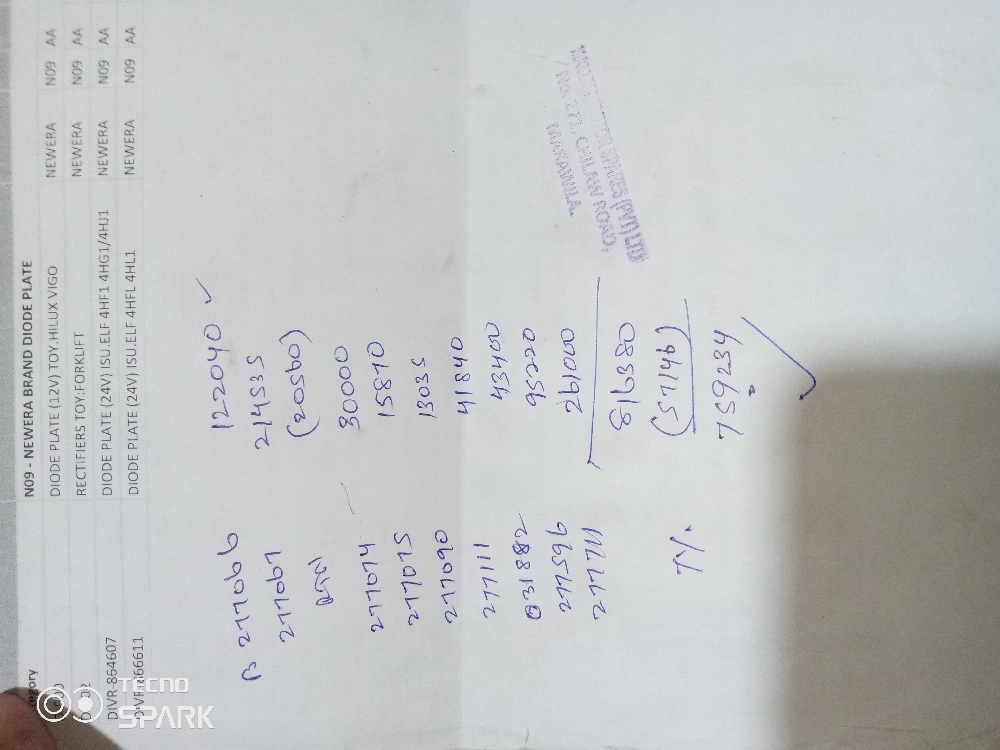 N09 - NEWERA BRAND DIODE PLATE
DIODE PLATE (12V) TOY.HILUX VIGO NEWERA N09 AA
RECTIFIERS TOY:FORKLIFT NEWERA N09 AA
DIVR-864607 DIODE PLATE (24V) ISU.ELF 4HF1 4HG1/4HJ1 NEWERA N09 AA
DIODE PLATE (24V) ISU.ELF 4HFL 4HL1 NEWERA N09 AA
277066 122040 ✓
277067 214535
(20560)
277074 30000
277075 15870
277090 13035
277111 41840
031882 43400
277596 95220
277711 261000
816380
7%. (57146)
759234
NO. 242,
CHILAW ROAD,
(PVT) LTD
TECNO
SPARK